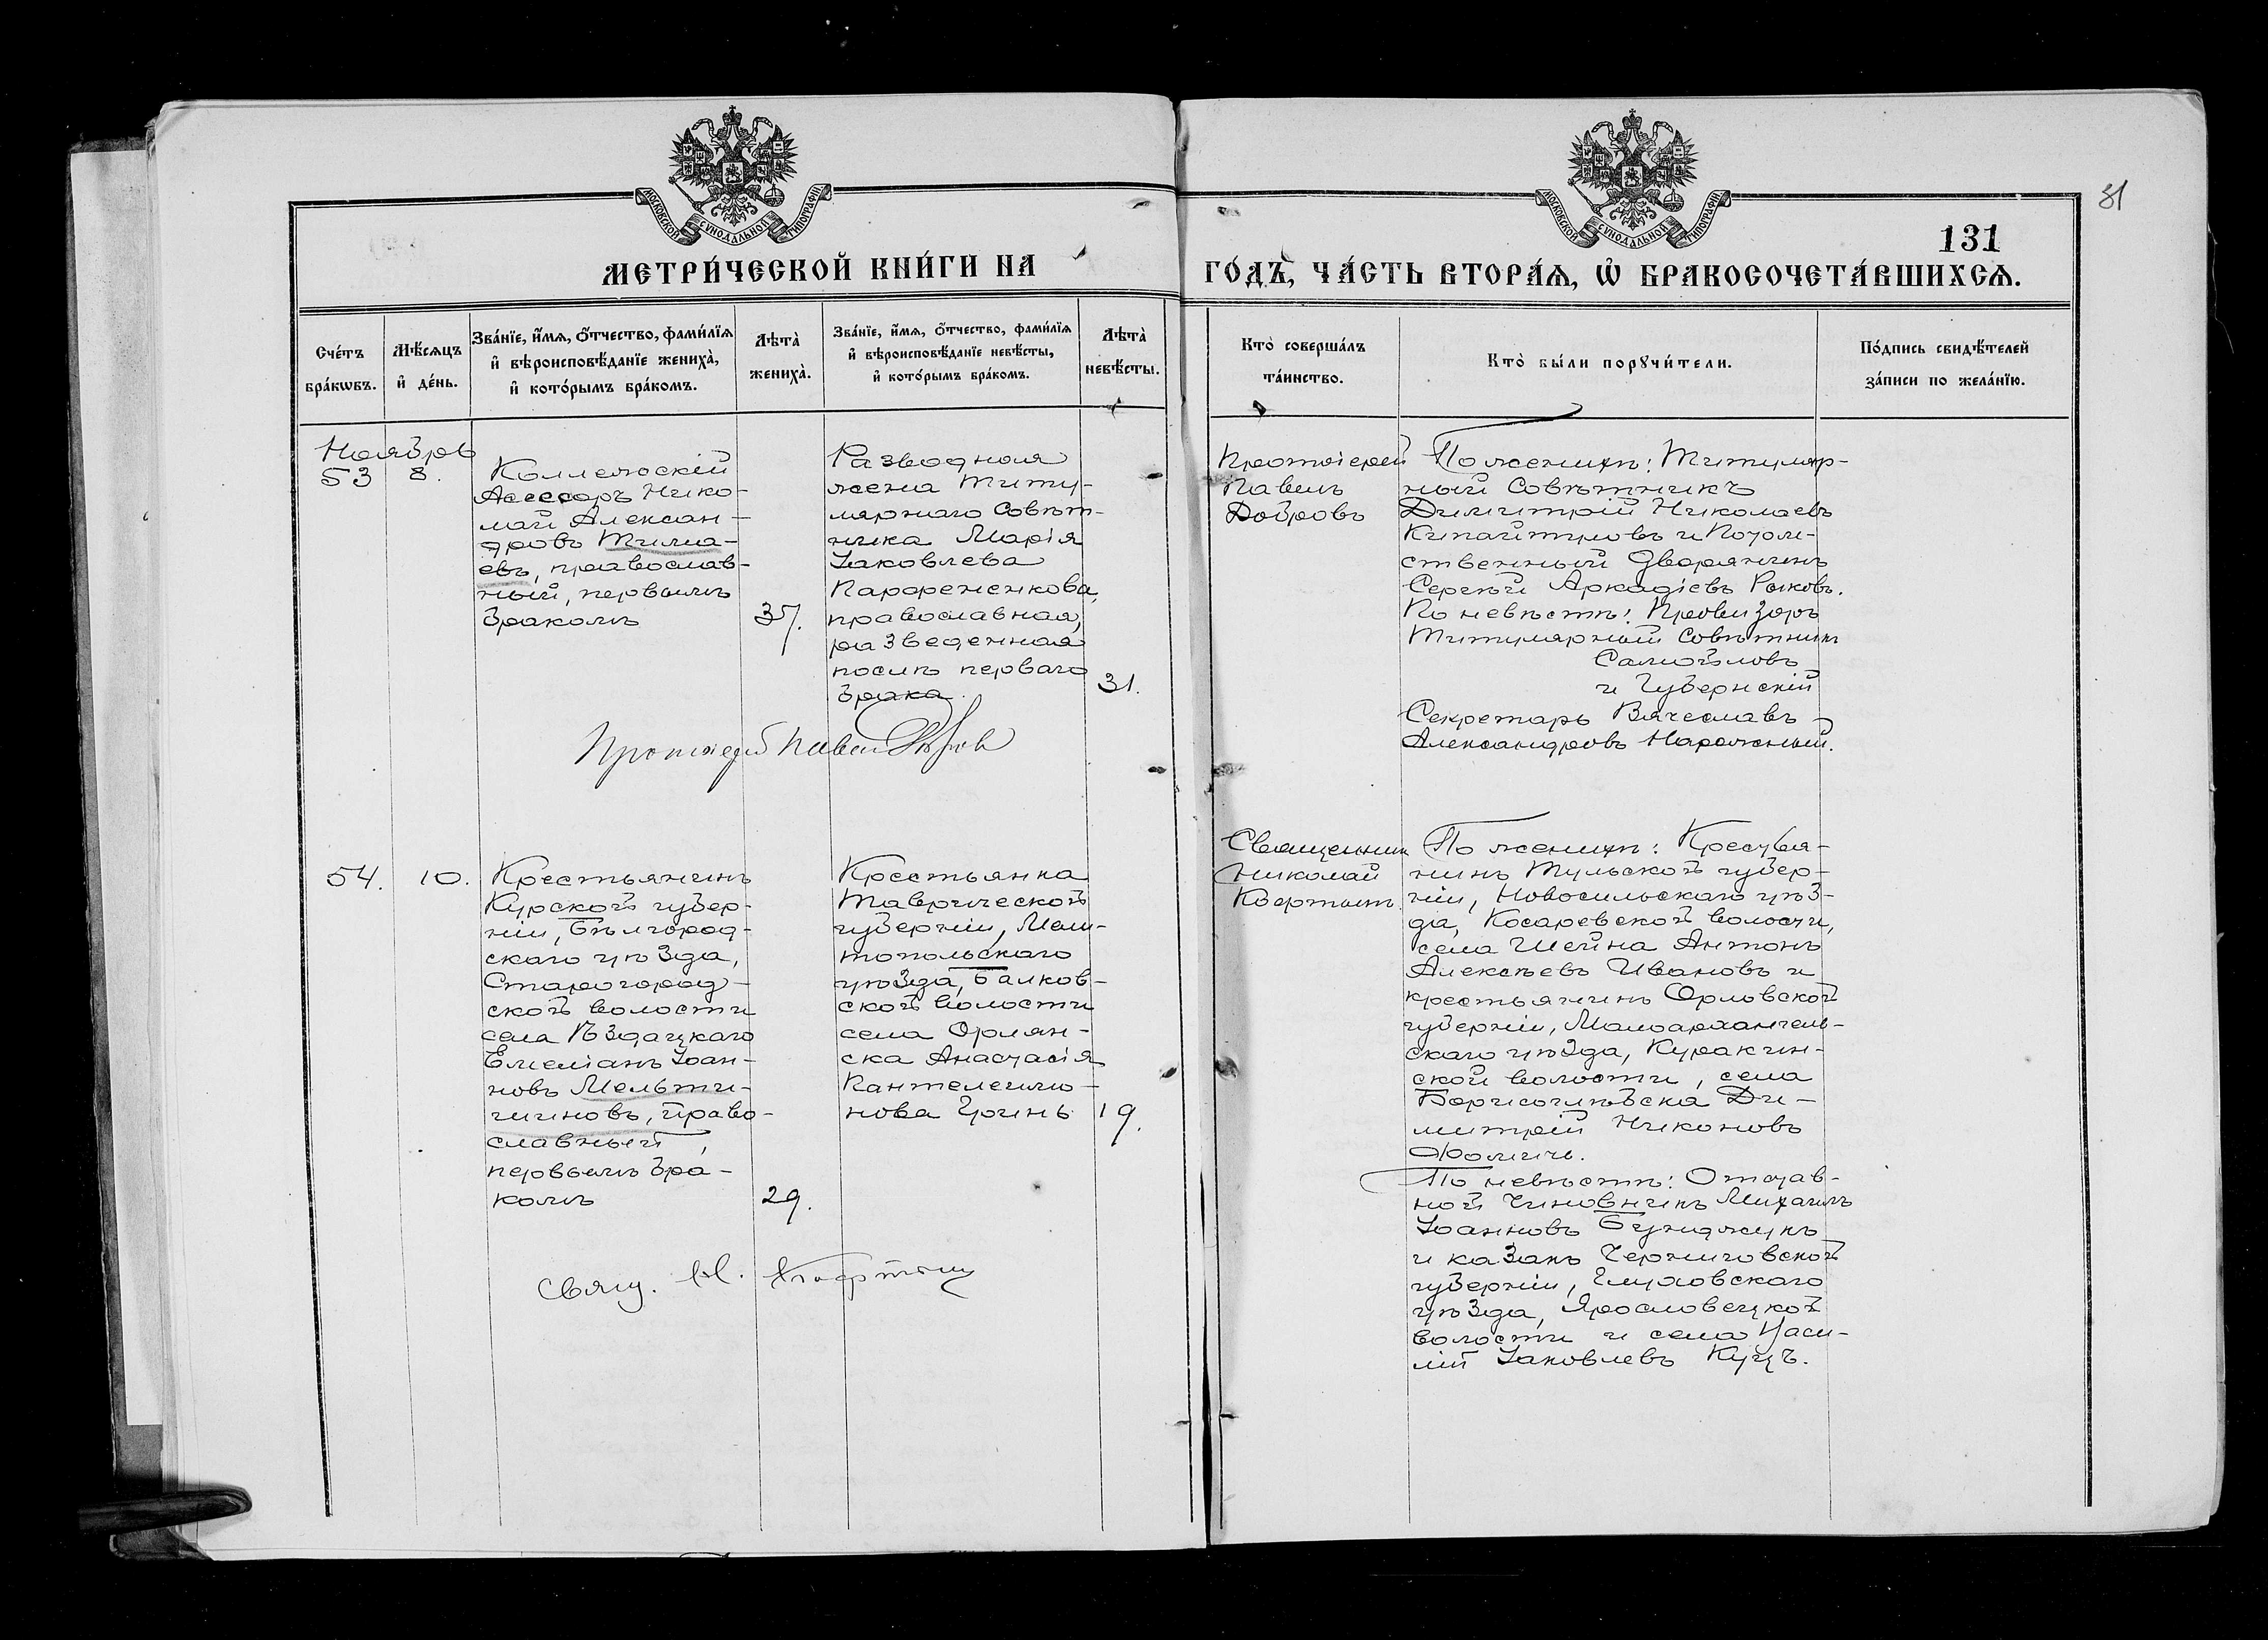 81
131
МОСКОВСКОЙ СѴНОДАЛЬНОЙ ТИПОГРАФІИ
МОСКОВСКОЙ СѴНОДАЛЬНОЙ ТИПОГРАФІИ
МЕТРИ́ЧЕСКОЙ КНИ́ГИ НА
ГО́ДЪ, ЧА́СТЬ ВТОРА́Ѧ, Ѡ҆ БРАКОСОЧЕТА́ВШИХСѦ.
Сче́тъ
бра́кѡвъ.
Мѣ́сѧцъ
и҆ де́нь.
Зва́нїе, и҆́мѧ, ѻ҆́тчество, фами́лїѧ
и҆ вѣроисповѣ́данїе жениха̀,
и҆ кото́рымъ бра́комъ.
Лѣта̀
жениха̀.
Зва́нїе, и҆́мѧ, ѻ҆́тчество, фами́лїѧ
и҆ вѣроисповѣ́данїе невѣ́сты,
и҆ кото́рымъ бра́комъ.
Лѣта̀
невѣ́сты.
Кто̀ соверша́лъ
та́инство.
Кто̀ бы́ли порꙋчи́тели.
По́дпись свидѣ́телей
за́писи по жела́нїю.
Ноябрь
53
8.
Коллежскій
Асессоръ Нико-
лай Алексан-
дровъ Тима-
евъ, православ-
ный, первымъ
бракомъ
37.
Разводная
жена Титу-
лярнаго Совѣт-
ника Марія
Іаковлева
Парфененкова,
православная,
разведенная
послѣ перваго
брака.
31.
Протоіерей
Павелъ
Добровъ
По женихѣ: Титуляр-
ный Совѣтникъ
Димитрій Николаевъ
и Потом-
ственный Дворянинъ
Сергѣй Аркадіевъ Рыковъ.
По невѣстѣ: Провизоръ
Титулярный Совѣтникъ
Самойловъ
и Губернскій
Секретарь Вячеславъ
Александровъ Нарожный.
Протоіерей Павелъ Добровъ
54.
10.
Крестьянинъ
Курской губер-
ніи, Бѣлгород-
скаго уѣзда,
Старогород-
ской волости
села
Емеліанъ Іоан-
новъ
право-
славный,
первымъ бра-
комъ
29.
Крестьянка
Таврической
губерніи, Мели-
топольскаго
уѣзда, Балков-
ской волости
села Орлян-
ска Анастасія
Пантелеимо-
нова Гринь
19.
Священникъ
Николай
По женихѣ: Крестья-
нинъ Тульской губер-
ніи, Новосильскаго уѣз-
да, Косаревской волости,
села Шейна Антонъ
Алексѣевъ Ивановъ и
крестьянинъ Орловской
губерніи, Малоархангель-
скаго уѣзда, Куракин-
ской волости, села
Борисоглѣбска Ди-
митрій Никоновъ
Фомичъ.
По невѣстѣ: Отстав-
ной Чиновникъ Михаилъ
Іоанновъ Бунджукъ
и казакъ Черниговской
губерніи, Глуховскаго
уѣзда, Ярославецкой
волости и села Васи-
лій Іаковлевъ Куцъ.
Свящ. Н.